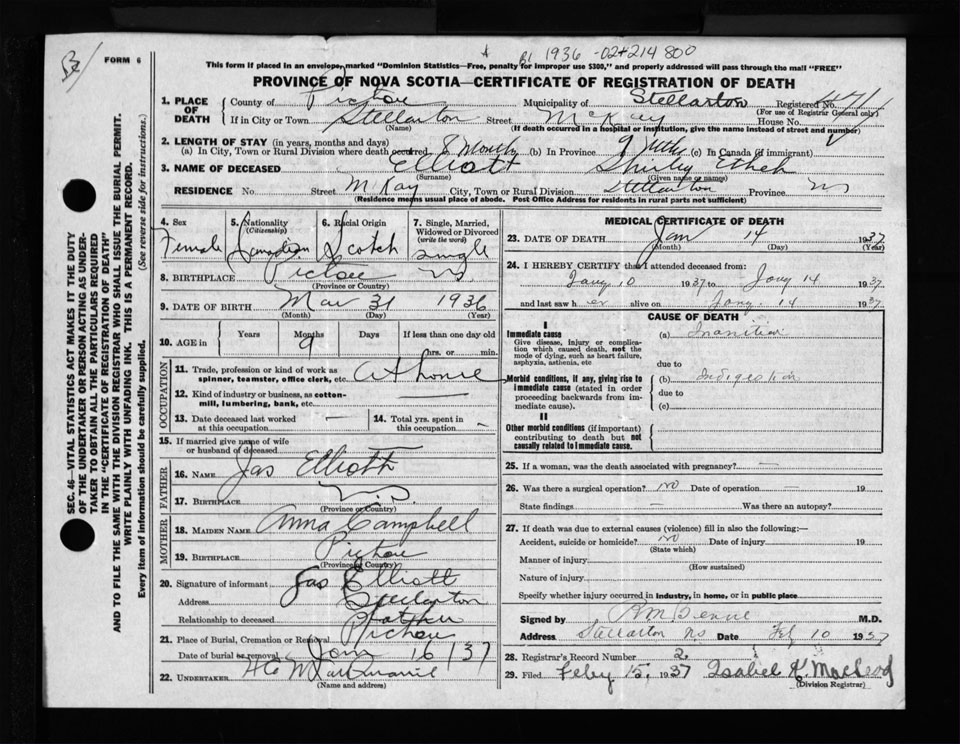 B1 1936 -02-214800
FORM 6
This form if placed in an envelope, marked "Dominion Statistics—Free, penalty for improper use $300," and properly addressed will pass through the mail "FREE"
PROVINCE OF NOVA SCOTIA—CERTIFICATE OF REGISTRATION OF DEATH
SEC. 46—VITAL STATISTICS ACT MAKES IT THE DUTY
OF THE UNDERTAKER OR PERSON ACTING AS UNDER-
TAKER TO OBTAIN ALL THE PARTICULARS REQUIRED
IN THE "CERTIFICATE OF REGISTRATION OF DEATH"
AND TO FILE THE SAME WITH THE DIVISION REGISTRAR WHO SHALL ISSUE THE BURIAL PERMIT.
WRITE PLAINLY WITH UNFADING INK. THIS IS A PERMANENT RECORD.
Every item of information should be carefully supplied. (See reverse side for instructions.)
1. PLACE OF DEATH County of Pictou Municipality of Stellarton Registered No.
(For use of Registrar General only)
If in City or Town Stellarton Street McKay House No.
(Name) (If death occurred in a hospital or institution, give the name instead of street and number)
2. LENGTH OF STAY (in years, months and days)
(a) In City, Town or Rural Division where death occurred 8 Months (b) In Province 9 Mths (c) In Canada (if immigrant)
3. NAME OF DECEASED Elliott Shirley Ethel
(Surname) (Given name or names)
RESIDENCE No. Street McKay City, Town or Rural Division Stellarton Province NS
(Residence means usual place of abode. Post Office Address for residents in rural parts not sufficient)
4. Sex 5. Nationality 6. Racial Origin 7. Single, Married,
(Citizenship) Widowed or Divorced
(write the word)
Female Canadian Scotch single
8. BIRTHPLACE Pictou NS
(Province or Country)
9. DATE OF BIRTH Mar 31 1936
(Month) (Day) (Year)
10. AGE in Years Months Days If less than one day old
9 hrs. or min.
OCCUPATION
11. Trade, profession or kind of work as
spinner, teamster, office clerk, etc. At home
12. Kind of industry or business, as cotton-
mill, lumbering, bank, etc. —
13. Date deceased last worked
at this occupation — 14. Total yrs. spent in
this occupation —
15. If married give name of wife
or husband of deceased —
FATHER
16. NAME Jas Elliott
17. BIRTHPLACE N.S.
(Province or Country)
MOTHER
18. MAIDEN NAME Anna Campbell
19. BIRTHPLACE Pictou
(Province or Country)
20. Signature of informant Jas Elliott
Address Stellarton
Relationship to deceased Father
21. Place of Burial, Cremation or Removal Pictou
Date of burial or removal Jan 16 / 37
22. UNDERTAKER
(Name and address)
MEDICAL CERTIFICATE OF DEATH
23. DATE OF DEATH Jan 14 1937
(Month) (Day) (Year)
24. I HEREBY CERTIFY that I attended deceased from:
Jany 10 1937 to Jany 14 1937
and last saw h er alive on Jany. 14 1937
CAUSE OF DEATH
I
Immediate cause (a) Inanition
Give disease, injury or complica-
tion which caused death, not the
mode of dying, such as heart failure,
asphyxia, asthenia, etc due to
Morbid conditions, if any, giving rise to (b) Indigestion
immediate cause (stated in order due to
proceeding backwards from im-
mediate cause). (c)
II
Other morbid conditions (if important)
contributing to death but not
causally related to immediate cause.
25. If a woman, was the death associated with pregnancy? —
26. Was there a surgical operation? no Date of operation — 19
State findings — Was there an autopsy?
27. If death was due to external causes (violence) fill in also the following:—
Accident, suicide or homicide? no Date of injury 19
(State which)
Manner of injury
(How sustained)
Nature of injury
Specify whether injury occurred in industry, in home, or in public place
Signed by M.D.
Address Stellarton NS Date Feb 10 1937
28. Registrar's Record Number 2.
29. Filed Feby 15, 1937 Isabel K. MacLeod
(Division Registrar)